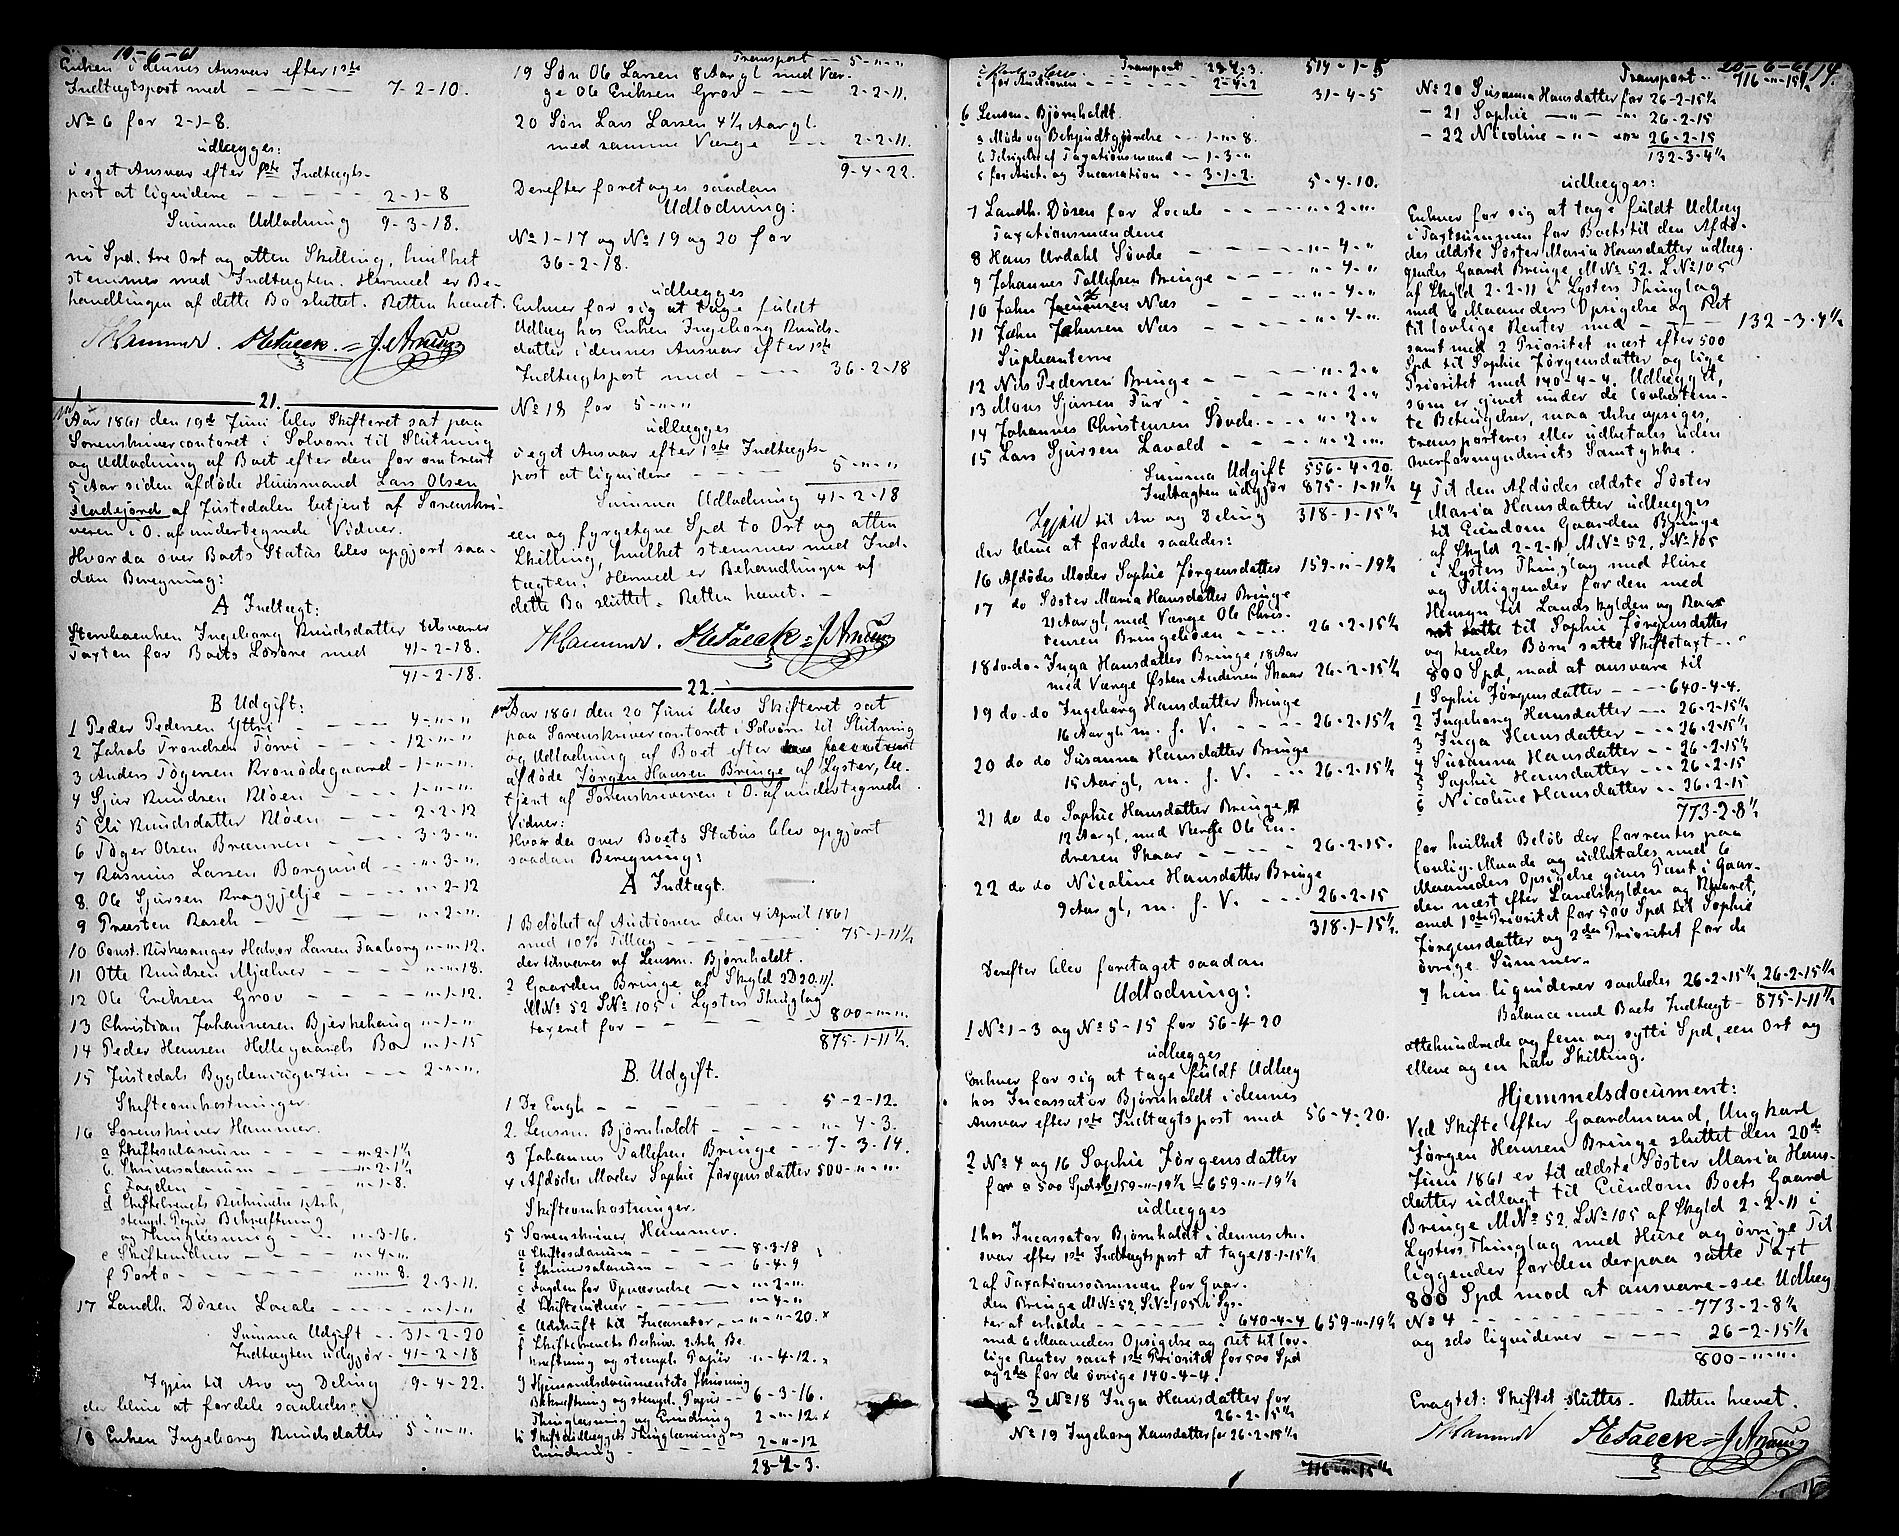 10-6-61
Enken i dennes Ansvar efter 1ste
Indtægtspost med 7-2-10.
No 6 for 2-1-8.
udlægges:
i eget Ansvar efter 1ste Indtægts-
post at liquidere 2-1-8
Summa Udlodning 9-3-18.
ni Spd. tre Ort og atten Skilling, hvilket
stemmer med Indtægten. Hermed er Be-
handlingen af dette Bo sluttet. Retten hævet.
JHammer.
21.
Aar 1861 den 19de Juni blev Skifteret sat paa
Sorenskrivercontoret i Solvorn til Slutning
og Udlodning af Boet efter den for omtrent
5 Aar siden afdøde Huusmand Lars Olsen
af Justedalen betjent af Sorenskri-
veren i O. af undertegnede Vidner.
Hvorda over Boets Status blev opgjort saa-
dan Beregning:
A Indtægt:
Stervboenken Ingeborg Knudsdatter tilsvarer
Taxten for Boets Løsøre med 41-2-18.
41-2-18.
B Udgift:
1 Peder Pedersen Yttri 4-"-"
2 Jakob Trondsen 12-"-"
3 Anders Tøgersen Kronødegaard - 1-"-"
4 Sjur Knudsen Kløen 1-"-"
5 Eli Knudsdatter Kløen 2-2-12
6 Tøger Olsen Brennen 3-3-"
7 Rasmus Larsen Borgund "-3-"
8. Ole Sjursen Kroggjelje "-2-12
9 Præsten Rasch "-2-"
10 Const. Kirkesanger Halvor Larsen Faaborg "-"-12.
11 Otte Knudsen Mjelver "-"-18.
12 Ole Eriksen Grov "-1-12.
13 Christian Johannesen Bjerkehaug "-1-"
14 Peder Hansen Hellegaards Bo "-1-15
15 Justedals Bygdemagazin 2-"-"
Skifteomkostninger
16 Sorenskriver Hammer.
a Skiftesalarium "-2-1½
b. Skriversalarium "-2-1½
c Fogden "-1-8.
d Skiftebrevets Beskrivelse 1½ Ark,
stempl. Papir, Bekræftning
og Thinglæsning "-3-16.
e Skiftevidner "-4-"
f Porto "-"-8. 2-3-11.
17 Landh. Døsen Locale "-1-"
Summa Udgift 31-2-20
Indtægten udgjør 41-2-18
Igjen til Arv og Deling 9-4-22.
der blive at fordele saaledes:
18 Enken Ingeborg Knudsdatter 5-"-"
Transport 5-"-"
19 Søn Ole Larsen 8 Aar gl. med Vær-
ge Ole Eriksen Grov 2-2-11.
20 Søn Lars Larsen 4½ Aar gl.
med samme Værge 2-2-11.
9-4-22.
Derefter foretages saadan
Udlodning:
No 1-17 og No 19 og 20 for
36-2-18.
udlægges
Enhver for sig at tage fuldt
Udlæg hos Enken Ingeborg Knuds-
datter i dennes Ansvar efter 1ste
Indtægtspost med 36-2-18
No 18 for 5-"-"
udlægges
i eget Ansvar efter 1ste Indtægts-
post at liquidere 5-"-"
Summa Udlodning 41-2-18
een og fyrgetyve Spd to Ort og atten
Skilling, hvilket stemmer med Ind-
tægten. Hermed er Behandlingen af
dette Bo sluttet. Retten hævet.
JHammer.
22.
Aar 1861 den 20 Juni blev Skifteret sat
paa Sorenskrivercontoret i Solvorn til Slutning
og Udlodning af Boet efter
afdøde Jørgen Hansen Bringe af Lyster, be-
tjent af Sorenskriveren i O. af undertegnede
Vidner:
Hvorda over Boets Status blev opgjort
saadan Beregning:
A Indtægt.
1 Beløbet af Auctionen den 4 April 1861
med 10% Tillæg 75-1-11½
der tilsvares af Lensm. Bjørnholdt.
2 Gaarden Bringe af Skyld 2D 2O 11 ß
M No 52 L No 105 i Lyster Thinglag
taxeret for 800-"-"
875-1-11½.
B. Udgift.
1 Dr Engh 5-2-12.
2. Lensm. Bjørnholdt "-4-3.
3 Johannes Tollefsen Bringe 7-3-14.
4 Afdødes Moder Sophie Jørgensdatter 500-"-"
Skifteomkostninger.
5 Sorenskriver Hammer.
a Skiftesalarium 8-3-18
b Skriversalarium 6-4-9
c Fogden for Opnævnelse "-2-"
d Skiftevidner "-4-"
e Udskrift til Incassator "-"-20.
f Skiftebrevets Beskriv. 2 Ark Be-
kræftning og stempl. Papir "-4-12.
g Hjemmelsdocumentets Skrivning
Bekræftning og stempl. Papir 6-3-16.
Thinglæsning og Erindring 2-"-12.
h Skifteudlæggets Thinglæsning og
Erindring 2-"-12
28-4-3.
Transport 28-4-3. 514-1-5
i for Auctionen 2-4-2
31-4-5
6 Lensm. Bjørnholdt.
a Møde og Bekjendtgjørelse 1-"-8.
b Tilsigelse af Taxationsmænd 1-3-"
c for Auct. og Incassation 3-1-2. 5-4-10.
7 Landh. Døsen for Locale "-2-"
Taxationsmændene
8 Hans Urdahl Sovde "-4-"
9 Johannes Tollefsen Bringe "-4-"
10 John Jensen Næs "-4-"
11 John Johnsen Næs "-4-"
Supleanterne
12 Nils Pedersen Bringe "-2-"
13 Mons Sjursen Fur "-2-"
14 Johannes Christensen Bovde "-2-"
15 Lars Sjursen Lavold "-2-"
Summa Udgift 556-4-20.
Indtægten udgjør 875-1-11½
Igjen til Arv og Deling 318-1-15½
der blive at fordele saaledes:
16 Afdødes Moder Sophie Jørgensdatter 159-"-19½
17 do Søster Maria Hansdatter Bringe
21 Aar gl. med Værge Ole Chris-
tensen Bringelien 26-2-15½
18 do.do. Inga Hansdatter Bringe, 18 Aar
med Værge Østen Andersen Skaar 26-2-15½
19 do.do Ingeborg Hansdatter Bringe
16 Aar gl. m. f. V. 26-2-15½
20 do do Susanna Hansdatter Bringe
15 Aar gl, m. f. V. 26-2-15½
21 do do Sophie Hansdatter Bringe,
12 Aar gl, med Værge Ole En-
dresen Skaar 26-2-15.
22 do do Nicoline Hansdatter Bringe
9 Aar gl, m. f. V. 26-2-15
318-1-15½
Derefter blev foretaget saadan
Udlodning:
1 No 1-3 og No 5-15 for 56-4-20
udlægges
Enhver for sig at tage fuldt Udlæg
hos Incassator Bjørnholdt i dennes
Ansvar efter 1ste Indtægtspost med 56-4-20.
2 No 4 og 16 Sophie Jørgensdatter
for a 500 Spd b 159-"-19½ = 659-"-19½
udlægges
1 hos Incassator Bjørnholdt i dennes An-
svar efter 1ste Indtægtspost at tage 18-1-15½
2 af Taxationssummen for Gaar-
den Bringe M No 52, L No 105 i Lys-
ter at erholde 640-4-4 659-"-19½
med 6 Maaneders Opsigelse og Ret til lov-
lige Renter samt 1ste Prioritet for 500 Spd
og 2den for de øvrige 140-4-4.
3 No 18 Inga Hansdatter for
26-2-15½
No 19 Ingeborg Hansdatter for 26-2-15½
716-"-15½
20-6-61 14.
Transport 716-"-15½
No 20 Susanna Hansdatter for 26-2-15½
- 21 Sophie 26-2-15
- 22 Nicoline 26-2-15
132-3-4½
udlægges:
Enhver for sig at tage fuldt Udlæg
i Taxtsummen for Boets til den Afdø-
des ældste Søster Maria Hansdatter udlæg-
gendes Gaard Bringe M No 52. L No 105
af Skyld 2-2-11 i Lysters Thinglag
med 6 Maaneders Opsigelse og Ret
til lovlige Renter med 132-3-4½
samt med 2 Prioritet næst efter 500
Spd til Sophie Jørgensdatter og lige
Prioritet med 140-4-4. Udlægget,
som er givet under de lovbestem-
te Betingelser, maa ikke opsiges,
transporteres eller udbetales uden
Overformynderiets Samtykke.
4 Til den Afdødes ældste Søster
Maria Hansdatter udlægges
til Eiendom Gaarden Bringe
af Skyld 2-2-11, M No 52. L No 105
i Lysters Thinglag med Huse
og Tilliggender for den med
Hensyn til Landskylden og Kaar
til Sophie Jørgensdatter
og hendes Børn satte Skiftetaxt
800 Spd, mod at ansvare til
1 Sophie Jørgensdatter 640-4-4.
2 Ingeborg Hansdatter 26-2-15½
3 Inga Hansdatter 26-2-15½
4 Susanna Hansdatter 26-2-15½
5 Sophie Hansdatter 26-2-15
6 Nicoline Hansdatter 26-2-15
773-2-8½
for hvilket Beløb der forrentes paa
lovlig Maade og udbetales med 6
Maaneders Opsigelse gives Pant i Gaar-
den næst efter Landskylden og Kaaret,
med 1ste Prioritet for 500 Spd til Sophie
Jørgensdatter og 2den Prioritet for de
øvrige Summer.
7 hun liquiderer saaledes 26-2-15½ 26-2-15½
Balance med Boets Indtægt 875-1-11½
ottehundrede og fem og sytti Spd, een Ort og
elleve og en halv Skilling.
Hjemmelsdocument:
Ved Skifte efter Gaardmand, Ungkarl
Jørgen Hansen Bringe sluttet den 20de
Juni 1861 er til ældste Søster Maria Hans-
datter udlagt til Eiendom Boets Gaard
Bringe M No 52, L No 105 af Skyld 2-2-11 i
Lysters Thinglag med Huse og øvrige Til-
liggender for den derpaa satte Taxt
800 Spd mod at ansvare - see Udlæg
No 4 773-2-8½
og selv liquiderer 26-2-15½
800-"-"
Eragtet: Skiftet sluttes. Retten hævet.
JHammer